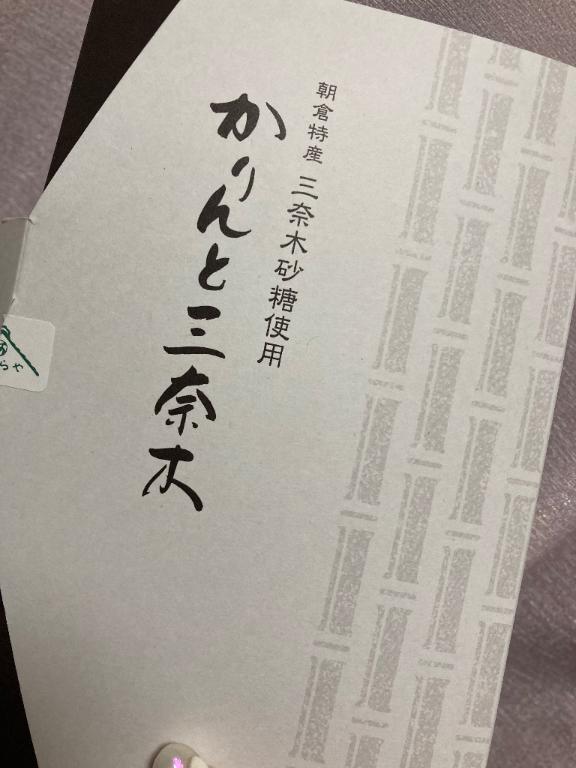 朝倉特産 三奈木砂糖使用
かりんと三奈木
らや